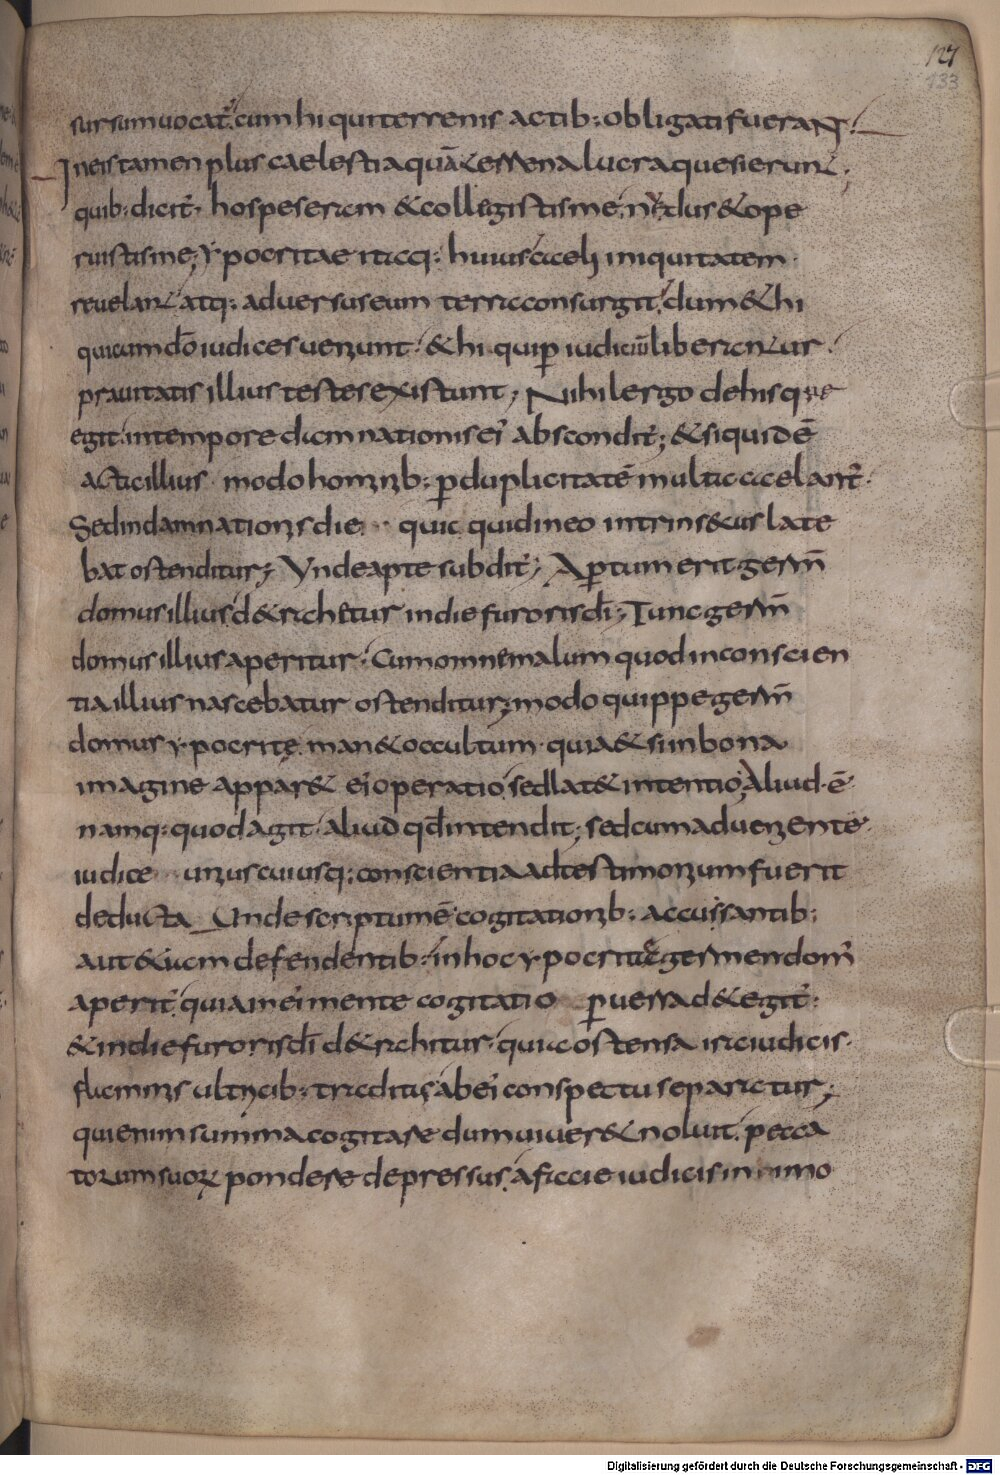 127
133
sursum uocat̄. cum hi qui terrenis actib: obligati fuerant.
In eis tamen plus caelestia quā terrena lucra quesierunt;
quib: dicit̄. hospes eram & collegistis me. nudus & ope
ruistis me; ypocritae itaq: huius caeli iniquitatem
reuelant atq: aduersus eum terra consurgit. dum & hi
qui cum dō iudices uenunt. & hi qui p̄ iudiciū liberantur.
prauitatis illius testes existunt; Nihil ergo de his que
egit. in tempore damnationis ei abscondit̄; & si quidē
acta illius modo hominib: p̄ duplicitatē multa celant̄.
Sed in damnationis die quia quid in eo intrinsecus late
bat ostenditur; Vnde apte subdit̄; Ap̄tum erit germ̄
domus illius d&rahetur in die furoris dī; Tunc germ̄
domus illius aperitur. Cum omne malum quod in conscien
tia illius nascebatur ostenditur; modo quippe germ̄
domus ypocritę man& occultum. quia & si in bona
imagine appar& ei operatio sed lat& intentio; Aliud. ē
namq: quod agit. aliud qđ intendit; sed cum adueniente
iudice uniuscuiusq: conscientia ad testimonium fuerit
deducta Unde scriptum ē cogitationib: accussantib:
aut & iam defendentib: in hoc ypocritae germen dom̄
aperit̄. quia in ei mente cogitatio p̄uersa d&egit̄:
& in die furoris dī d&rahitur. quia ostensa ira iudicis.
flammis ultricib: traditus ab ei conspectu separatur;
qui enim summa cogitare dum uiuer& noluit. pecca
torum suorꝝ pondere depressus. a facie iudicis in imo
Digitalisierung gefördert durch die Deutsche Forschungsgemeinschaft - DFG